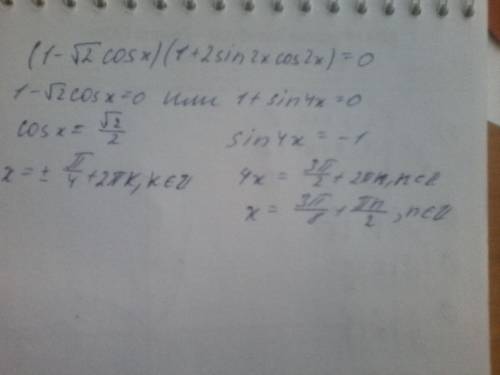 (1-√2 cosx)(1+2sin2xcos2x)=0
1-√2cosx=0 или 1+sin4x=0
cosx=√2/2 sin4x=-1
x=±π/4+2πk, k∈Z 4x=3π/2+2πn, n∈Z
x=3π/8+πn/2, n∈Z